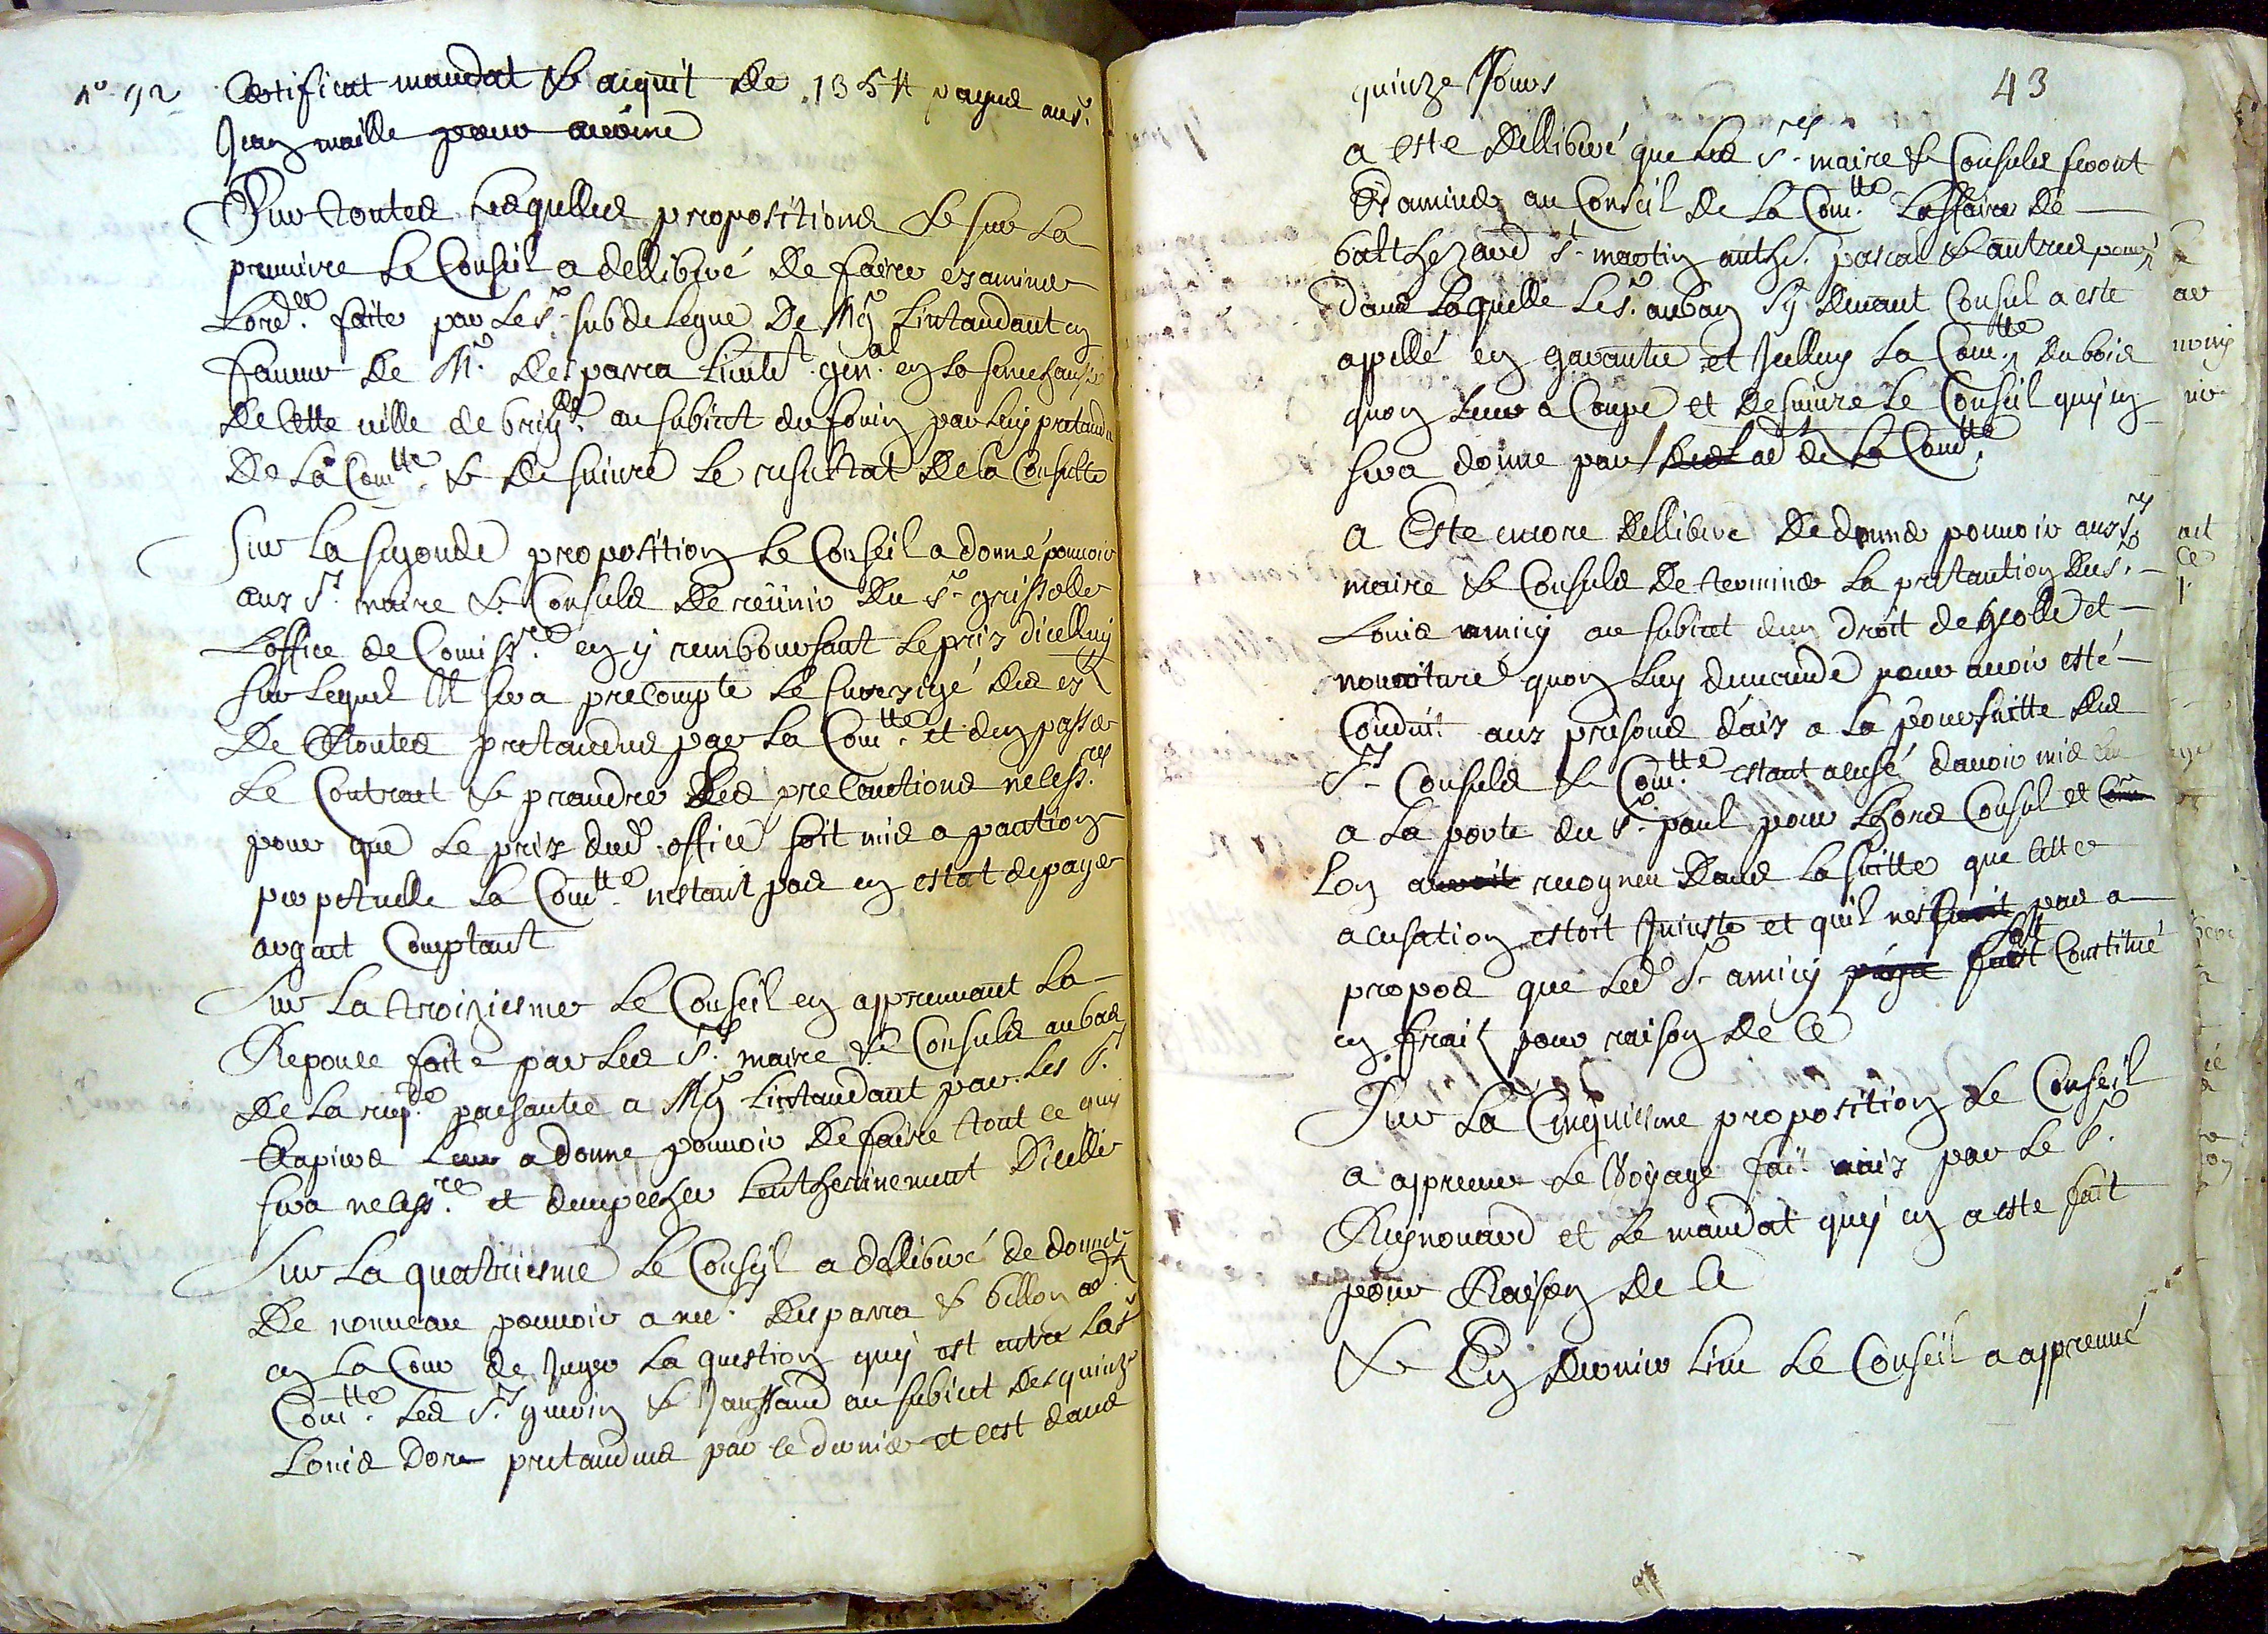 n° 92 Certificat mandat & aiquit de 135 ₶ payes au sr.
Jean maille pour avoine
Sur toutes lesquelles propositions & sur la
premiere le Conseil a dellibéré de faire examiner
Lord.ce faitte par le sr. subdelegue de Mgr Lintandant en
faveur de Mr. desparra lieut. gen.al en la senechaussée
de cette ville de brig.lles au subiect du fouin par luy pretandu
de la Com.tté & de suivre le resultat de la Consulte
Sur la segonde proposition le Conseil a donné pouvoir
aux srs. maire & Consuls de reünir du sr. grisselle
Loffice de Comiss.re en y remboursant le prix dicelluy
sur lequel il sera precompté le
de toutes pretandues par la Com.tté et den passer
le Contract & prandre les precautions necess.res
pour que le prix dud. office soit mis a pantion
perpetuelle la Com.tté nestant pas en estat de payer
argent Comptant
Sur la troiziesme le Conseil en appreuvant la
Reponce faite par les srs. maire & Consuls au bas
de la req.te presantée a Mgr Lintandant par les srs.
leur a donne pouvoir de faire tout ce quy
sera necess.re et dempecher lentherinement dicelle
Sur la quatriesme le Conseil a dellibéré de donner
de nouveau pouvoir a me.s desparra & billon adts
en la Cour de Juger la question quy est entre lad.
Com.tté les srs. guerin & Jaussaud au subiect des quinze
Louis dor pretandus par ce dernier et cest dans
43
quinze Jours
a esté dellibéré que les srs. maire & Consuls feront
Examiner au Conseil de la Com.tté Laffaire de
balthezard st. martin anthe. pascal & autres
dans laquelle le sr. auban sy devant Consul a esté
appellé en garantie et Jcelluy la Com.tté du bois
quon leur a Coupé et de suivre le Conseil quy en
sera donné par ad de la Com.tté
a Esté encore dellibéré de donner pouvoir aux srs
maire & Consuls de terminer la pretantion du sr.
Louis amicy au subiect dun droit de geolle et
nourriture quon luy demande pour avoir esté
Conduit aux prisons daix a la poursuitte des
srs. Consuls & Com.tté estant acusé davoir mis
a la porte du sr. paul pour Lhors Consul et
Lon avoit recogneu dans la suitte que cette
acusation estoit Jniuste et quil nes pas a
propos que led. sr. amicy soit Constitué
en frais pour raison de ce
Sur la Cinquiesme proposition le Conseil
a appreuvé le Voyage fait aix par le sr.
Reynouard et le mandat quy en a esté fait
pour Raison de ce
& En dernier lieu le Conseil a appreuvé